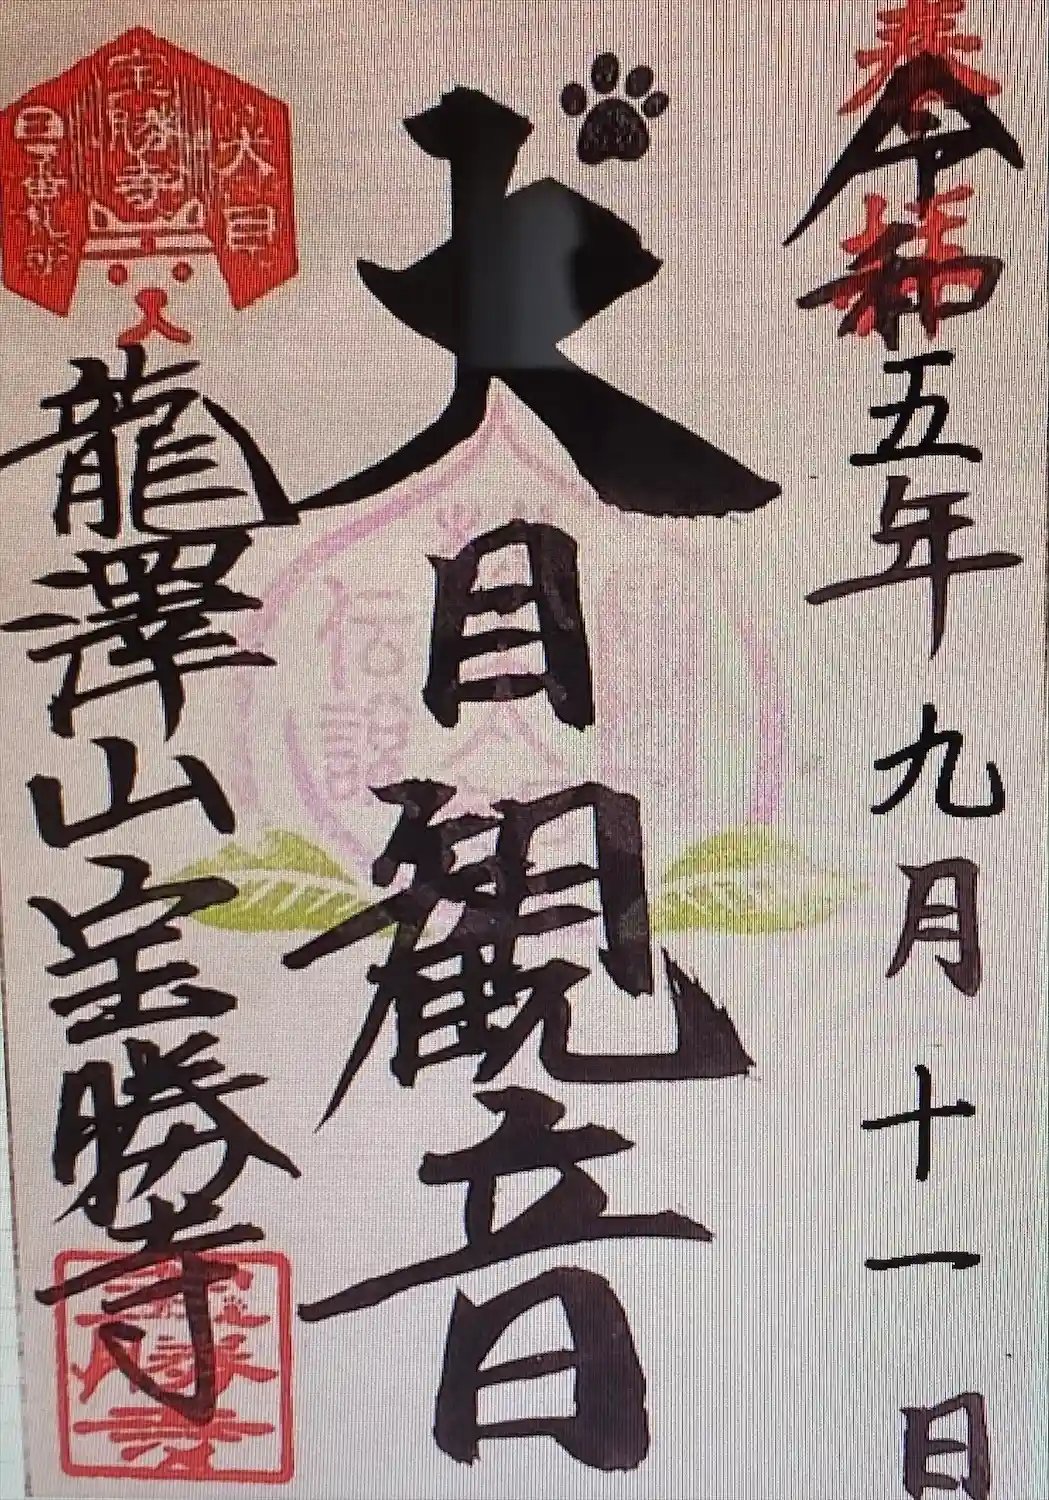 奉拝
令和五年九月十一日
犬目観音
犬目
宝勝寺
龍澤山宝勝寺
寶勝寺